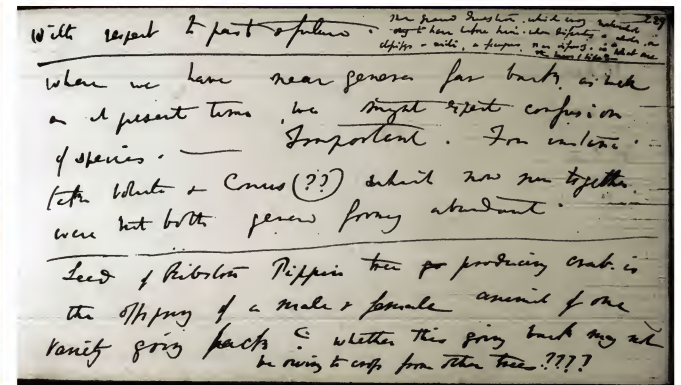 229
With respect to past & future. The grand Question, which every naturalist
ought to have before him, when dissecting a whale, or
classifying a mite, a fungus, or an infusorian. is "What are
the Laws of Life"
Where we have near genera far back, as well
as at present time, we might expect confusion
of species. — Important. For instance
take Voluta & Conus (??) which now run together.
were not both genera formerly abundant
Seed of Ribston Pippin tree go producing crab is
the offspring of a male & female animal of one
variety going back ¿ whether this going back may not
be owing to cross from other trees????